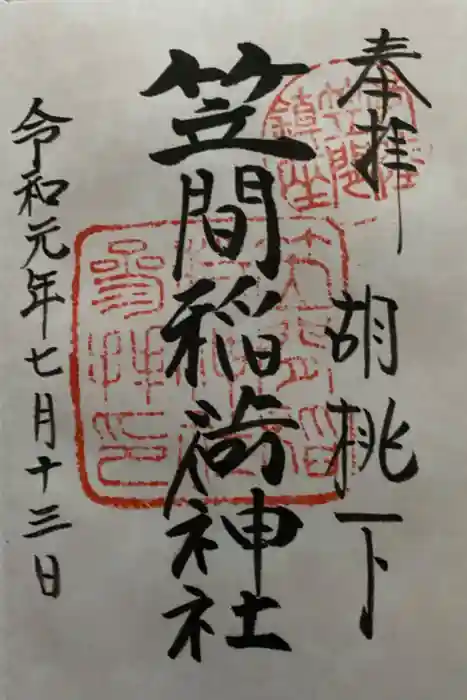 奉拝 胡桃下
笠間稲荷神社
令和元年七月十三日